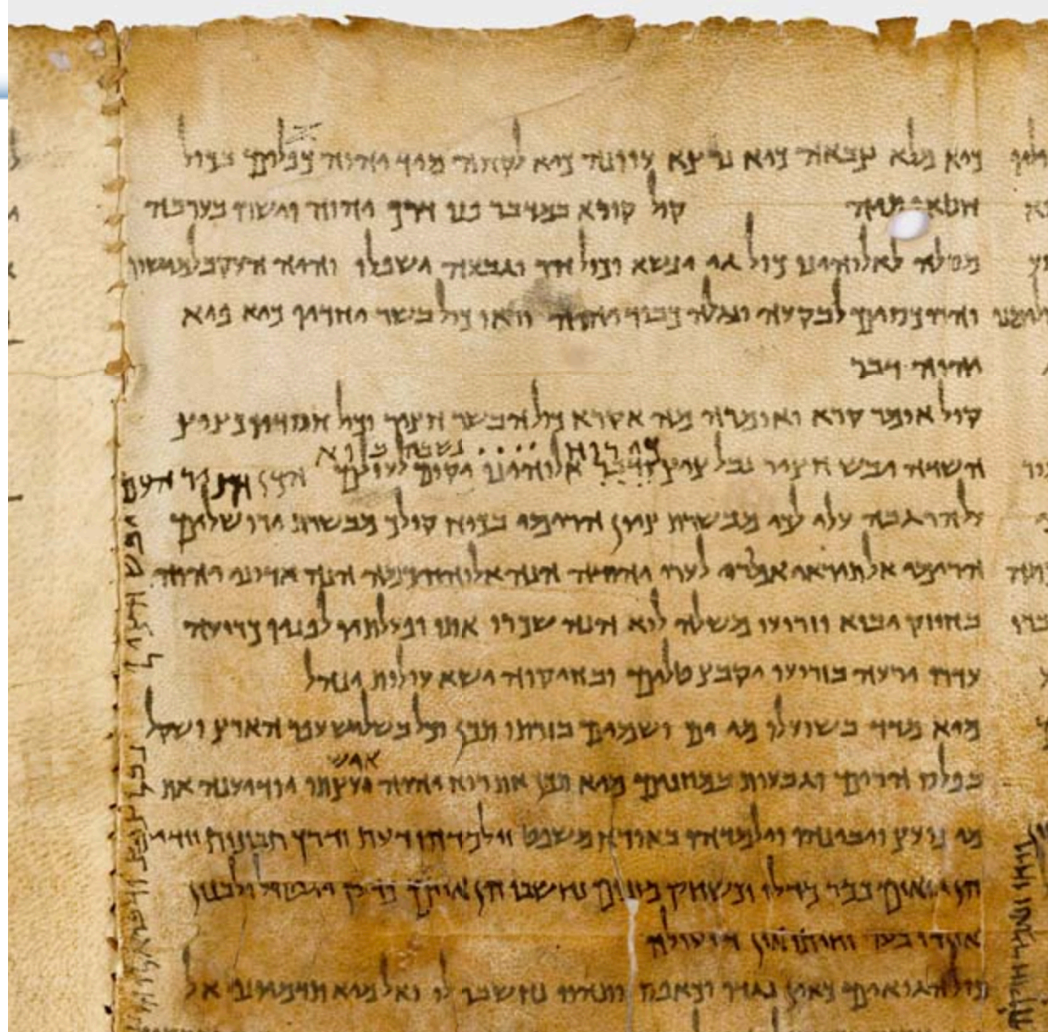 כיא מלא צבאה כיא נרצא עוונה כיא לקחה מיד יהוה כפלים בכול
חטאותיה קול קורא במדבר פנו דרך יהוה וישרו בערבה
מסלה לאלוהינו כול גי ינשא וכול הר וגבעה ישפלו והיה העקב למישור
והרכסים לבקעה ונגלה כבוד יהוה וראו כול בשר יחדיו כיא פיא
יהוה דבר
קול אומר קרא ואומרה מה אקרא כול הבשר חציר וכול חסדיו כציץ
כי רוח .... נשבה בוא
השדה יבש חציר נבל ציץ ודבר אלוהינו יקום לעולם הכן חציר העם
על הר גבה עלי לכי מבשרת ציון הרימי בכוח קולך מבשרת ירושלים
הרימי אל תיראי אמרי לערי יהודה הנה אלוהיכמה הנה אדוני יהוה
בחוזק יבוא וזרועו משלה לוא הנה שכרו אתו ופעלתיו לפניו כרועה
עדרו ירעה בזרועו יקבץ טלים ובחיקוה ישא עולות ינהל
מיא מדד בשועלו מי ים ושמים בזרתו תכן וכל בשליש עפר הארץ ושקל
איש
בפלס הרים וגבעות במוזנים מיא תכן את רוח יהוה ועצתו יודיענה את
מי נועץ ויבינהו וילמדהו באורח משפט וילמדהו דעת ודרך תבונות
הן גואים כמר מדלי וכשחק מוזנים נחשבו הן איים כדק יטול ולבנון
אין די בער וחיתו אין די עולה
כול הגואים כאין נגדו וכאפס ותהוו נחשבו לו ואל מיא תדמיוני אל
יבש חציר נבל ציץ ודבר אלוהינו